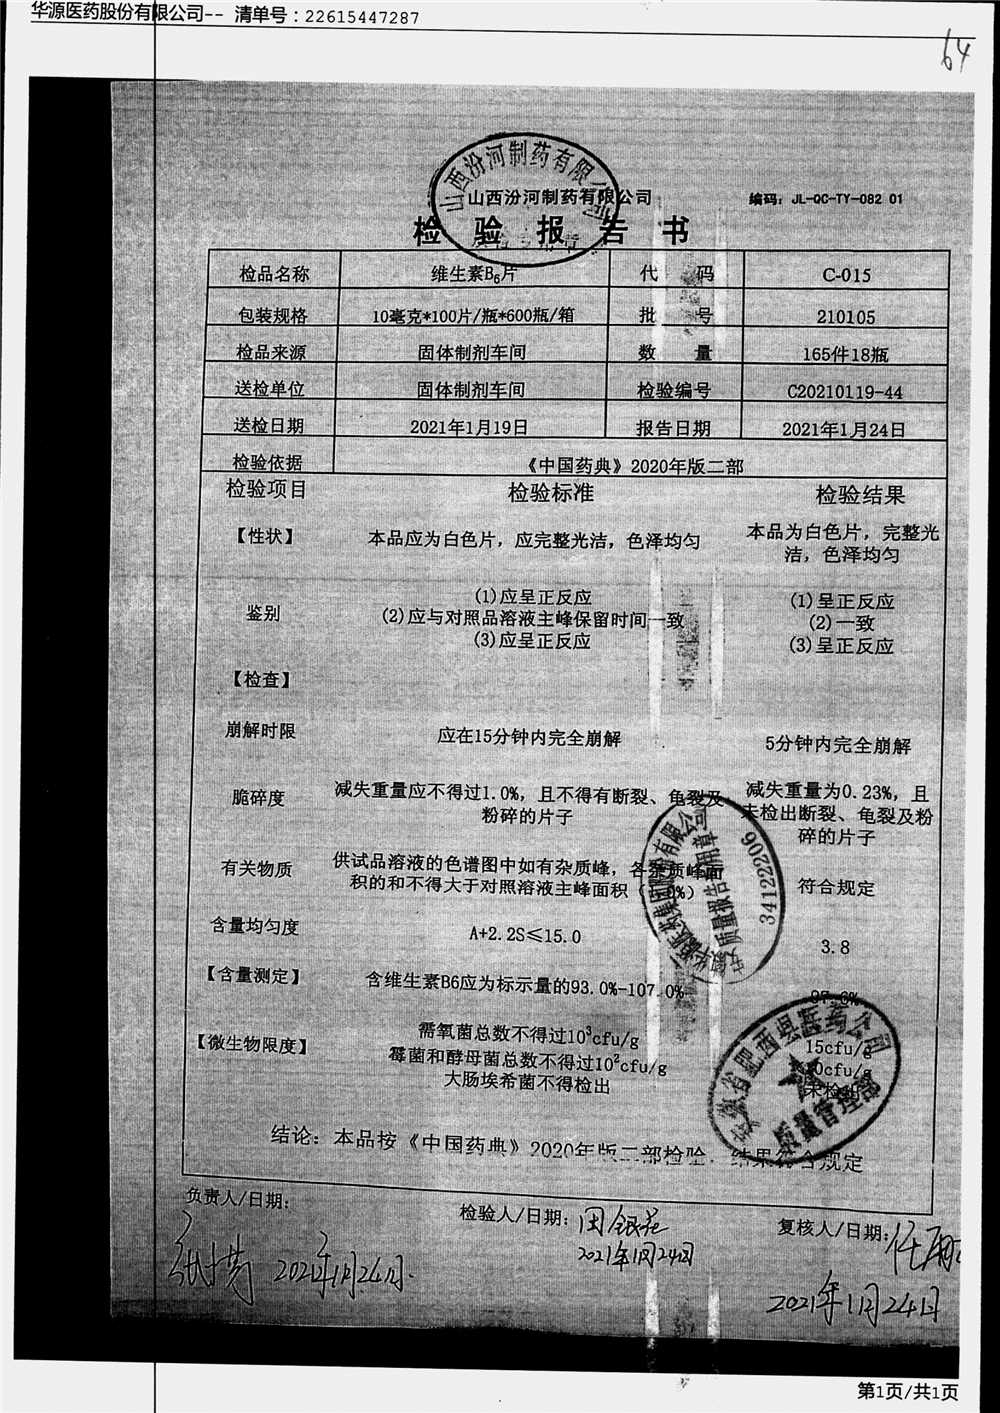 华源医药股份有限公司-- 清单号：22615447287
64
山西汾河制药有限公司
山西汾河制药有限公司
编码：JL-QC-TY-082 01
检验报告书
检品名称 维生素B6片 代码 C-015
包装规格 10毫克*100片/瓶*600瓶/箱 批号 210105
检品来源 固体制剂车间 数量 165件18瓶
送检单位 固体制剂车间 检验编号 C20210119-44
送检日期 2021年1月19日 报告日期 2021年1月24日
检验依据 《中国药典》2020年版二部
检验项目 检验标准 检验结果
【性状】 本品应为白色片，应完整光洁，色泽均匀 本品为白色片，完整光
洁，色泽均匀
鉴别 (1)应呈正反应 (1)呈正反应
(2)应与对照品溶液主峰保留时间一致 (2)一致
(3)应呈正反应 (3)呈正反应
【检查】
崩解时限 应在15分钟内完全崩解 5分钟内完全崩解
脆碎度 减失重量应不得过1.0%，且不得有断裂、龟裂及 减失重量为0.23%，且
粉碎的片子 未检出断裂、龟裂及粉
碎的片子
有关物质 供试品溶液的色谱图中如有杂质峰，各杂质峰面
积的和不得大于对照溶液主峰面积 符合规定
含量均匀度 A+2.2S≤15.0 3.8
【含量测定】 含维生素B6应为标示量的93.0%-107.0%
【微生物限度】 需氧菌总数不得过10³cfu/g 15cfu/g
霉菌和酵母菌总数不得过10²cfu/g
大肠埃希菌不得检出 未检出
结论：本品按《中国药典》2020年版二部检验，结果符合规定
质量报告专用章
341222206
安徽省肥西县医药公司
质量管理部
负责人/日期： 检验人/日期：周银花 复核人/日期：
2021年1月24日 2021年1月24日 2021年1月24日
第1页/共1页